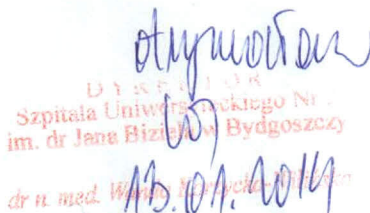 otrzymałam
DYREKTOR
Szpitala Uniwersyteckiego Nr
im. dr Jana Biziela w Bydgoszczy
dr n. med. Wanda
13.01.2014